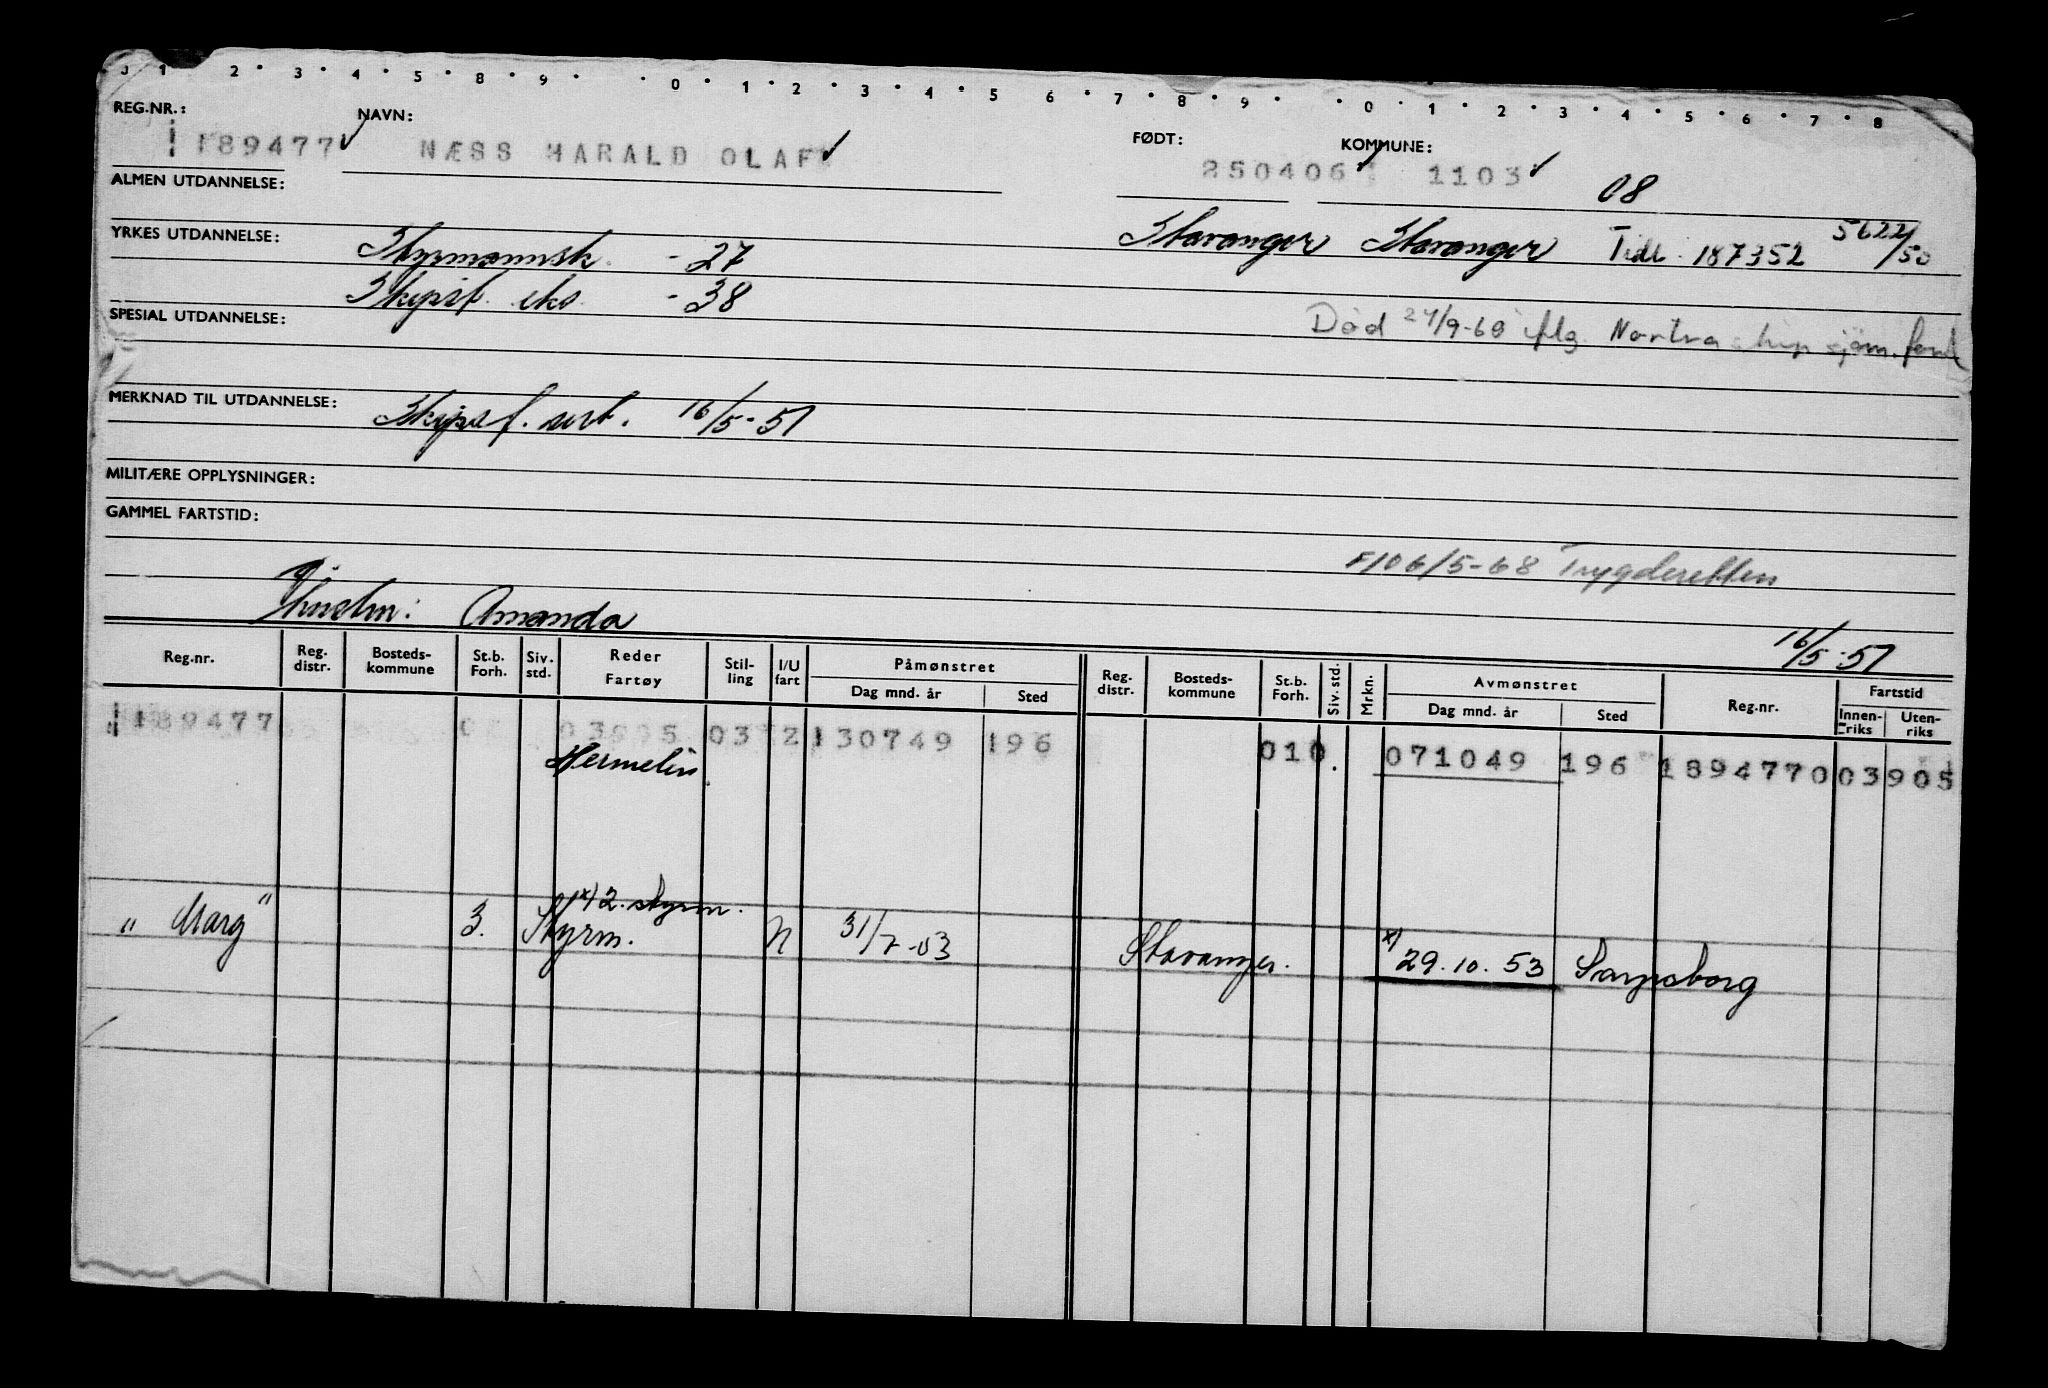 1 2 3 4 5 8 9 0 1 2 3 4 5 6 7 8 9 0 1 2 3 4 5 6 7 8
REG.NR.: NAVN: FØDT: KOMMUNE:
189477 NÆSS HARALD OLAF 250406 1103 08
ALMEN UTDANNELSE:
Stavanger Stavanger Tidl. 187352 5622/50
YRKES UTDANNELSE: Styrmannsk. - 27
Skipsf. eks. - 38
SPESIAL UTDANNELSE:
Død 24/9-68 iflg. Nortraship sjøm. fond
MERKNAD TIL UTDANNELSE: Skipsf. sert. 16/5-51
MILITÆRE OPPLYSNINGER:
GAMMEL FARTSTID:
F106/5-68 Trygderetten
Hustru: Amanda
16/5-51
Reg.nr. Reg. distr. Bosteds- kommune St.b. Forh. Siv. std. Reder Fartøy Stil- ling I/U fart Påmønstret Dag mnd. år Sted Reg. distr. Bosteds- kommune St.b. Forh. Siv. std. Mrkn. Avmønstret Dag mnd. år Sted Reg.nr. Fartstid Innen- riks Uten- riks
189477 0 03 2 130749 196 010 071049 196 1894770 03905
Hermelin
x) 2. styrm.
"Marg" 3. Styrm. N 31/7-53 Stavanger. x) 29.10.53 Sarpsborg